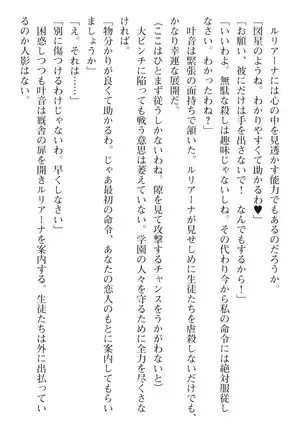 ルリアーナには心の中を見透かす能力でもあるのだろうか。
「図星のようね。わかりやすくて助かるわ♥」
「お願い、彼にだけは手を出さないで！　なんでもするから！」
「いいわよ。無駄な殺しは趣味じゃないしね。その代わり今から私の命令には絶対服従し
なさい。わかったわね？」
叶音は緊張の面持ちで頷いた。ルリアーナが見せしめに生徒たちを虐殺しないだけでも、
かなり幸運な展開だ。
（ここはひとまず従うしかないわね。隙を見て攻撃するチャンスをうかがわないと）
大ピンチに陥っても戦う意思は萎えていない。学園の人々を守るために全力を尽くさな
ければ。
「物分かりが良くて助かるわ。じゃあ最初の命令、あなたの恋人のもとに案内してもらい
ましょうか」
「え、それは……」
「別に傷つけるわけじゃないわ。早くしなさい」
困惑しつつも叶音は厩舎の扉を開きルリアーナを案内する。生徒たちは外に出払ってい
るのか人影はない。